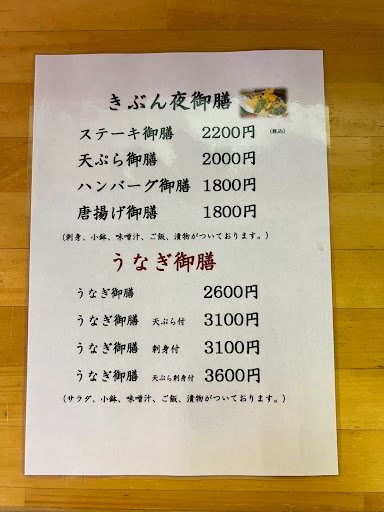 きぶん夜御膳
ステーキ御膳 2200円 (税込)
天ぷら御膳 2000円
ハンバーグ御膳 1800円
唐揚げ御膳 1800円
(刺身、小鉢、味噌汁、ご飯、漬物がついております。)
うなぎ御膳
うなぎ御膳 2600円
うなぎ御膳 天ぷら付 3100円
うなぎ御膳 刺身付 3100円
うなぎ御膳 天ぷら刺身付 3600円
(サラダ、小鉢、味噌汁、ご飯、漬物がついております。)